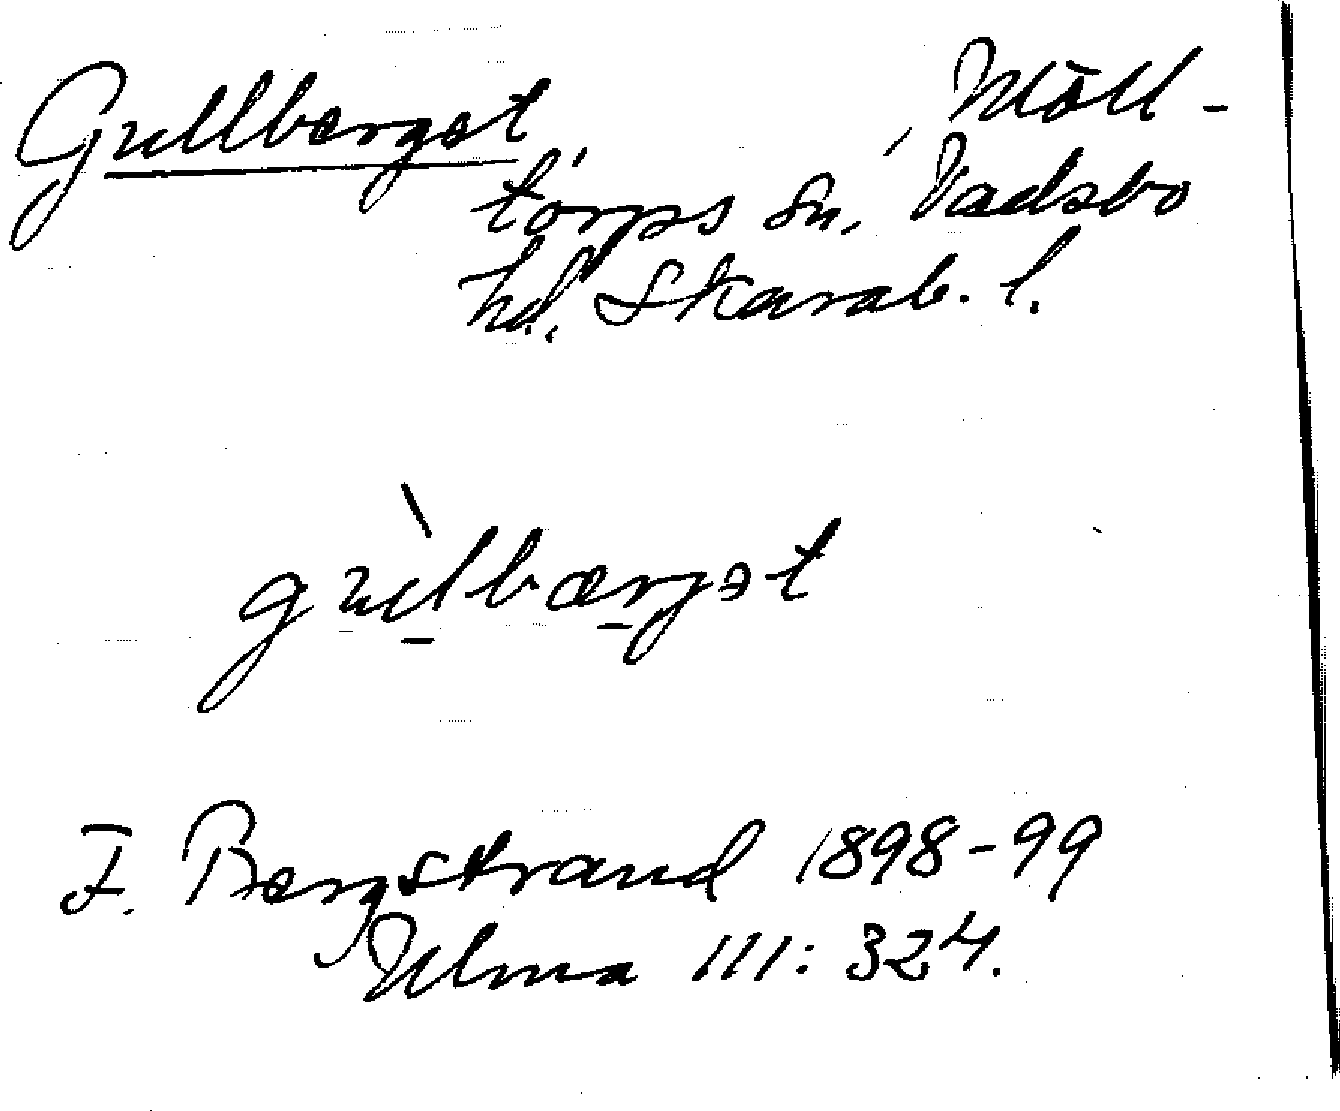 Gullberget, Möll-
torps sn, Vadsbo
hd. Skarab. l.
gùlbærjət
F. Bergstrand 1898-99
Ulma 111: 324.